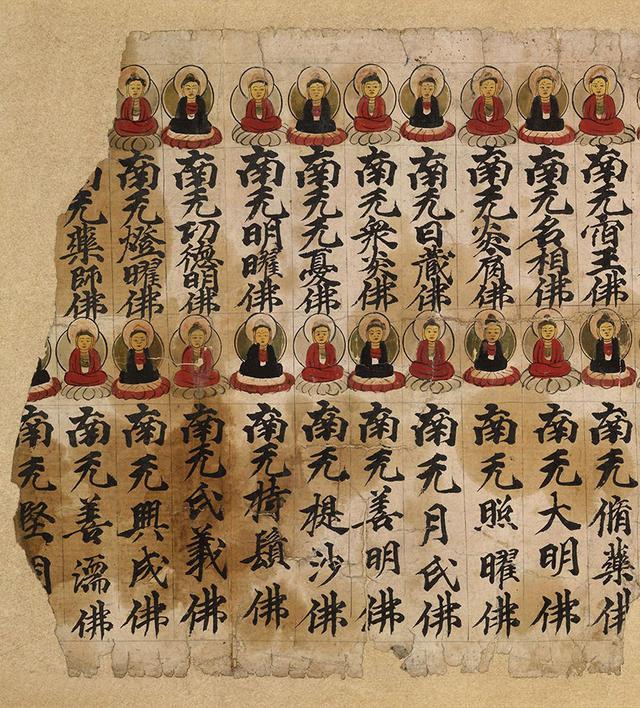 南无宿王佛
南无名相佛
南无炎肩佛
南无日藏佛
南无衆炎佛
南无无憂佛
南无明曜佛
南无功德明佛
南无燈曜佛
无藥師佛
南无脩藥佛
南无大明佛
南无照曜佛
南无月氏佛
南无善明佛
南无提沙佛
南无持鬘佛
南无氏義佛
南无興成佛
南无善濡佛
南无堅明